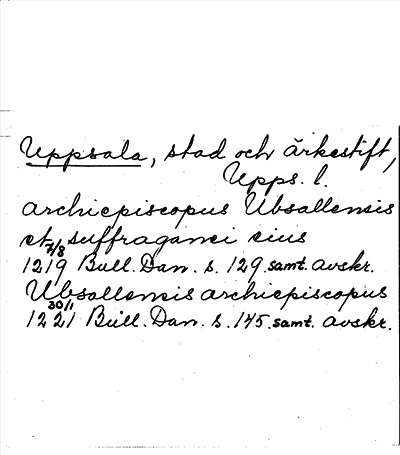 Uppsala, stad och ärkestift,
Upps. l.
archiepiscopus Ubsallensis
et suffraganei eius
7/8
1219 Bull. Dan. s. 129. samt. avskr.
Ubsallensis archiepiscopus
30/1
1221 Bull. Dan. s. 145. samt. avskr.